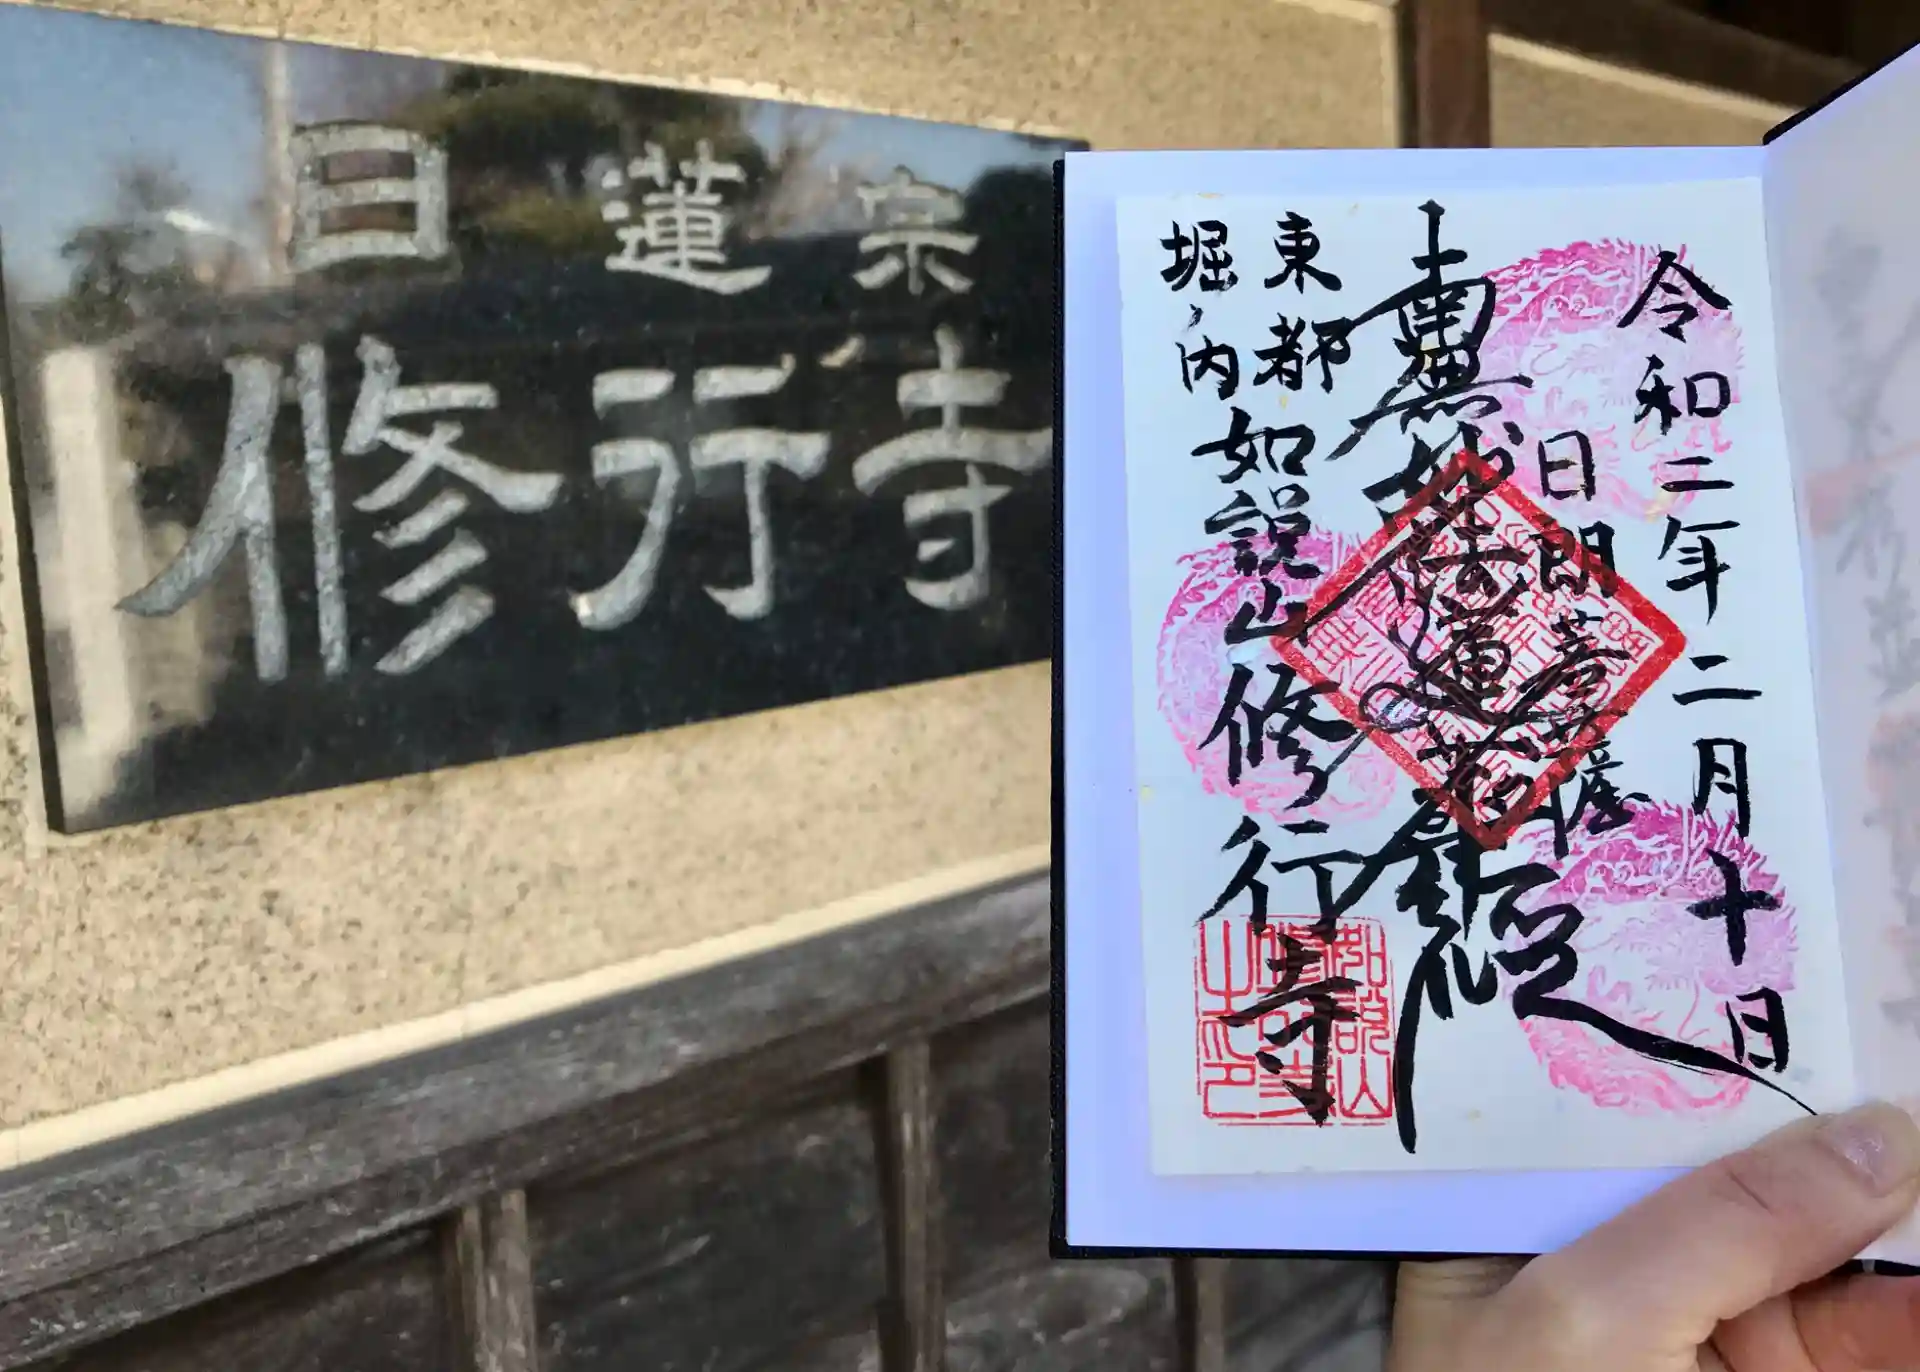 日蓮宗
修行寺
令和二年二月十日
日朗菩薩
南無妙法蓮華経
東都
堀ノ内
如説山修行寺
如説山
修行寺
之印